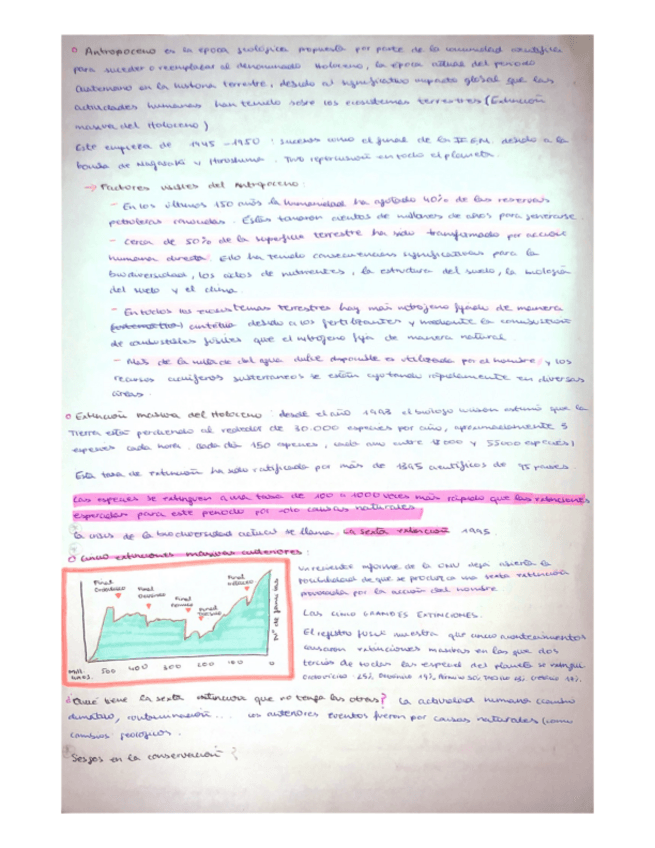 Antropoceno es la época geológica propuesta por parte de la comunidad científica
para suceder o reemplazar al denominado Holoceno, la época actual del periodo
Cuaternario en la historia terrestre, debido al significativo impacto global que las
actividades humanas han tenido sobre los ecosistemas terrestres (Extinción
masiva del Holoceno)
Este empieza de 1945 - 1950 : sucesos como el final de la II G.M. debido a la
bomba de Nagasaki y Hiroshima. Tuvo repercusión en todo el planeta.
→ Factores visibles del Antropoceno:
- En los últimos 150 años la humanidad ha agotado 40% de las reservas
petroleras conocidas. Estas tardaron cientos de millones de años para generarse.
- Cerca de 50% de la superficie terrestre ha sido transformado por acción
humana directa. Esto ha tenido consecuencias significativas para la
biodiversidad, los ciclos de nutrientes, la estructura del suelo, la biología
del suelo y el clima
- En todos los ecosistemas terrestres hay más nitrógeno fijado de manera
artificial debido a los fertilizantes y mediante la combustión
de combustibles fósiles que el nitrógeno fija de manera natural.
- Más de la mitad del agua dulce disponible es utilizada por el hombre, y los
recursos acuíferos subterráneos se están agotando rápidamente en diversas
áreas.
Extinción masiva del Holoceno : desde el año 1993 el biólogo Wilson estimó que la
Tierra está perdiendo al rededor de 30.000 especies por año, aproximadamente 3
especies cada hora. (cada día 150 especies, cada año entre 18000 y 55000 especies)
Esta tasa de extinción ha sido ratificada por más de 1395 científicos de 95 países.
Las especies se extinguen a una tasa de 100 a 1000 veces más rápido que las extinciones
esperadas para este periodo por solo causas naturales
la crisis de la biodiversidad actual se llama: la sexta extinción 1995.
Cinco extinciones masivas anteriores :
Final Ordovícico
Final Devónico
Final Pérmico
Final Triásico
Final Cretácico
Nº de familias
Mill. años.
500 400 300 200 100 0
Un reciente informe de la ONU deja abierta la
posibilidad de que se produzca una sexta extinción
provocada por la acción del hombre
LAS CINCO GRANDES EXTINCIONES.
El registro fósil muestra que cinco acontecimientos
causaron extinciones masivas en las que dos
tercios de todas las especies del planeta se
¿Qué tiene la sexta extinción que no tenga las otras? La actividad humana (cambio
climático, contaminación... los anteriores eventos fueron por causas naturales (como
cambios geológicos.
Sesgos en la conservación ?